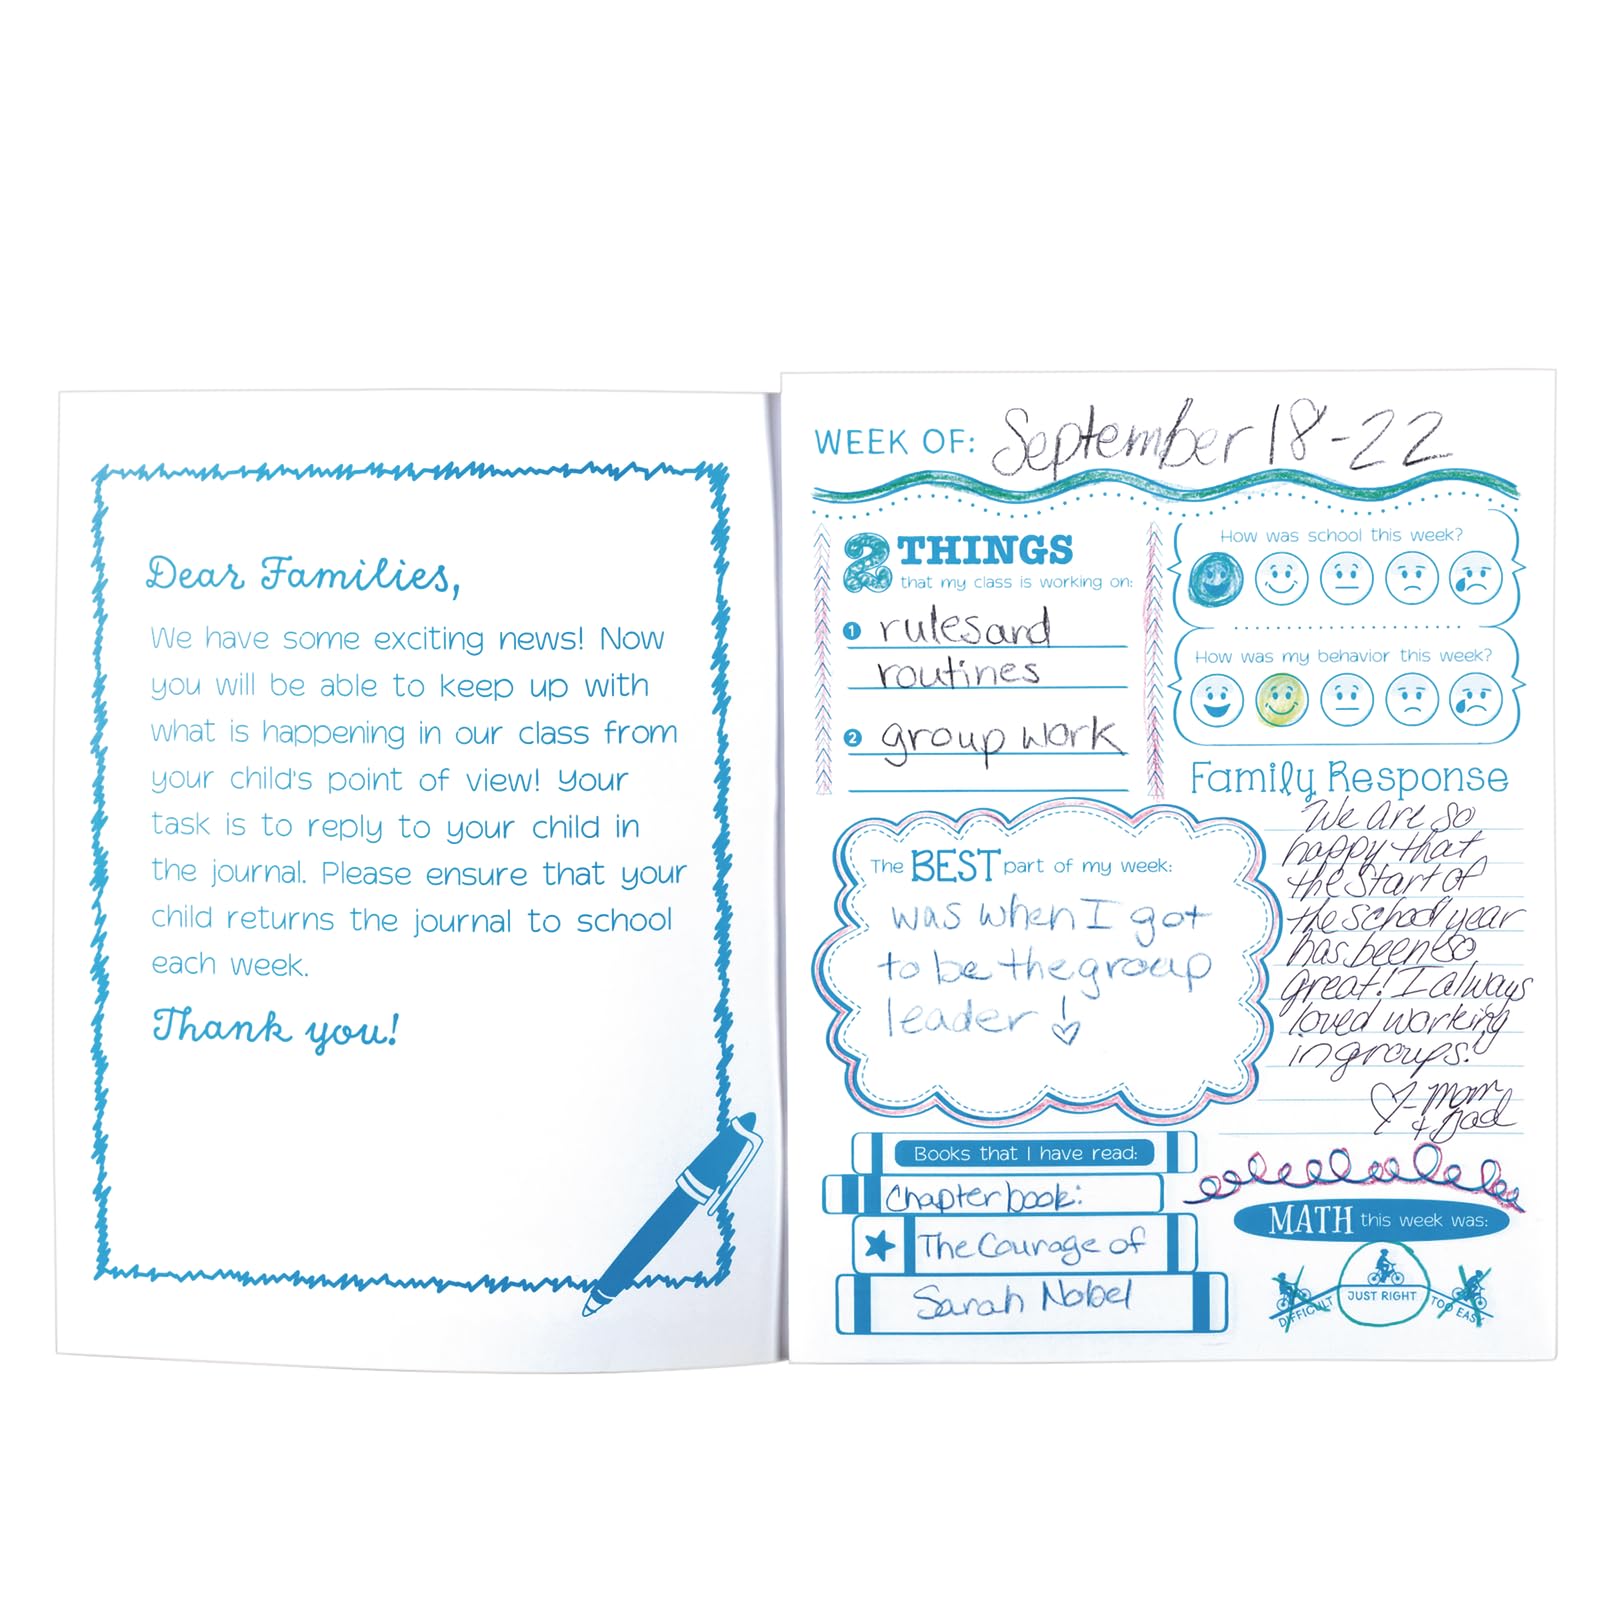 Dear Families,
We have some exciting news! Now
you will be able to keep up with
what is happening in our class from
your child's point of view! Your
task is to reply to your child in
the journal. Please ensure that your
child returns the journal to school
each week.
Thank you!
WEEK OF: September 18-22
2 THINGS
that my class is working on:
1 rules and
routines
2 group work
How was school this week?
How was my behavior this week?
The BEST part of my week:
was when I got
to be the group
leader!
Family Response
We are so
happy that
the start of
the school year
has been so
great! I always
loved working
in groups!
♡- Mom
+ Dad
Books that I have read:
Chapter book:
The Courage of
Sarah Nobel
MATH this week was:
DIFFICULT
JUST RIGHT
TOO EASY